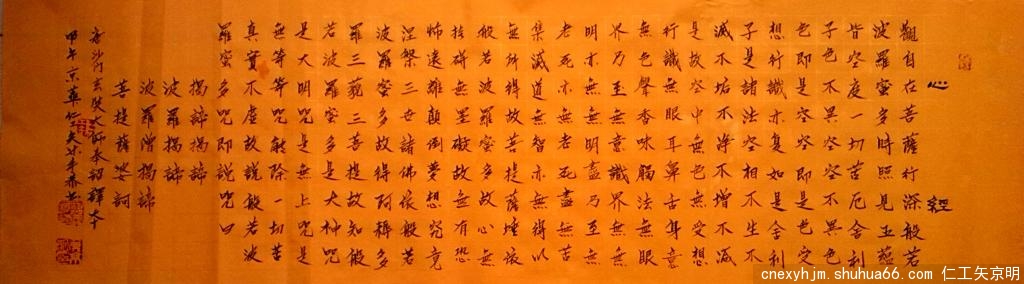 心經
觀自在菩薩行深般若
波羅蜜多時照見五蘊
皆空度一切苦厄舍利
子色不異空空不異色
色即是空空即是色受
想行識亦复如是舍利
子是諸法空相不生不
滅不垢不淨不增不減
是故空中無色無受想
行識無眼耳鼻舌身意
無色聲香味觸法無眼
界乃至無意識界無無
明亦無無明盡乃至無
老死亦無老死盡無苦
集滅道無智亦無得以
無所得故菩提薩埵依
般若波羅蜜多故心無
挂碍無罣礙故無有恐
怖遠離顛倒夢想究竟
涅槃三世諸佛依般若
波羅蜜多故得阿耨多
羅三藐三菩提故知般
若波羅蜜多是大神咒
是大明咒是無上咒是
無等等咒能除一切苦
真實不虛故說般若波
羅蜜多咒即說咒曰
揭諦揭諦
波羅揭諦
波羅僧揭諦
菩提薩婆訶
唐沙門玄奘大師奉詔譯
甲午京華仁
cnexyhjm.shuhua66.com 仁工矢京明